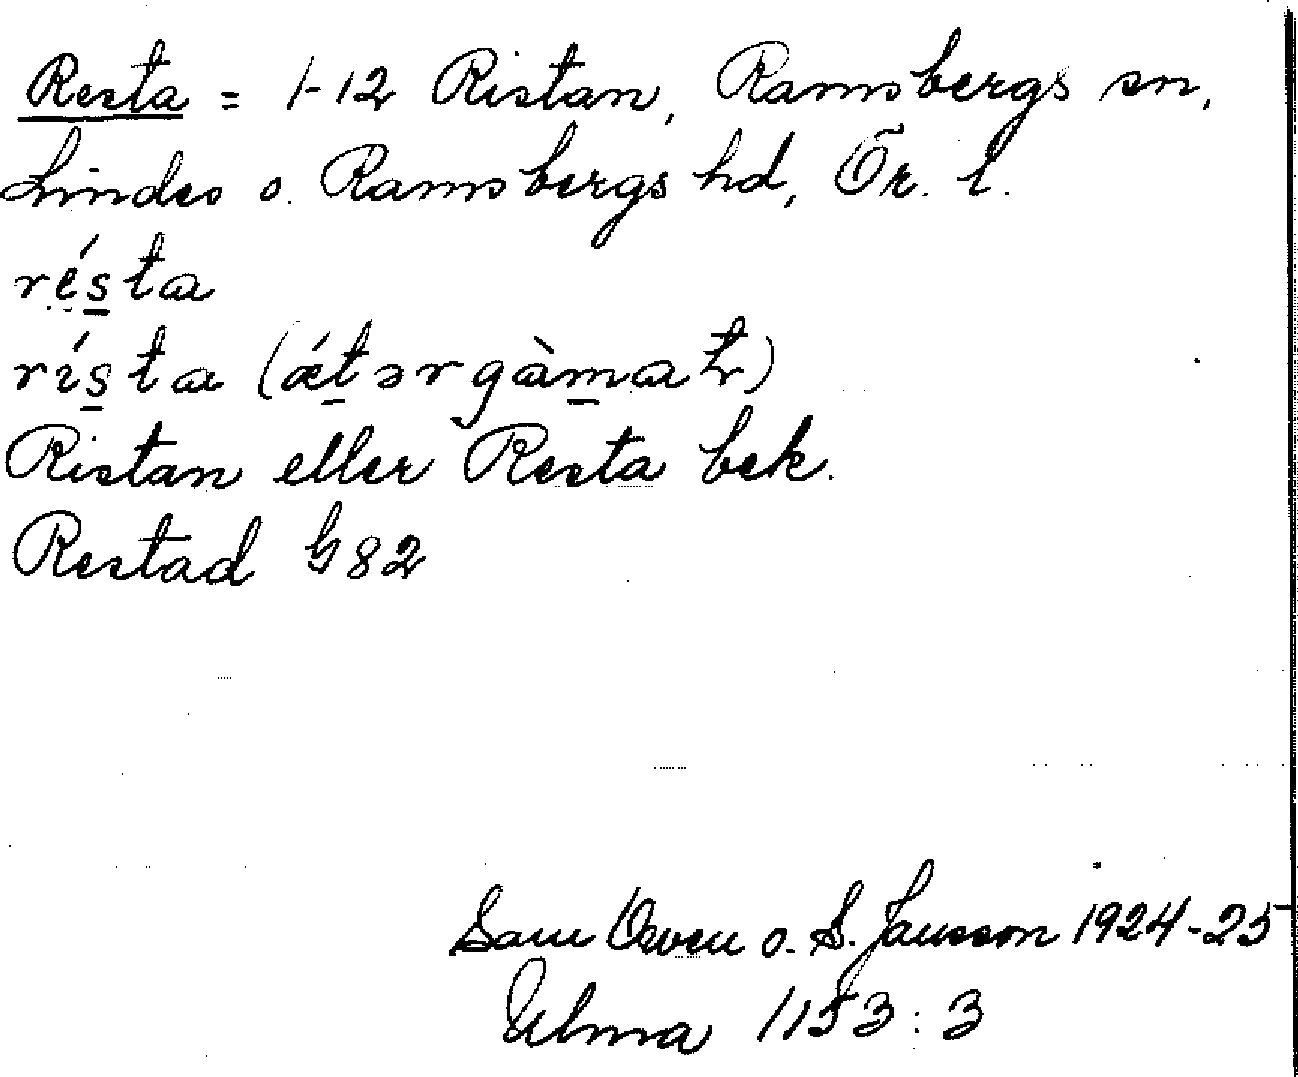 Resta = 1-12 Ristan, Ramsbergs sn,
Lindes o. Ramsbergs hd, Ör. l.
résta
rísta (ǽtərgàmaɬ)
Ristan eller Resta bek.
Restad G 82
Sam Owen o. S. Jansson 1924-25
Ulma 1153:3